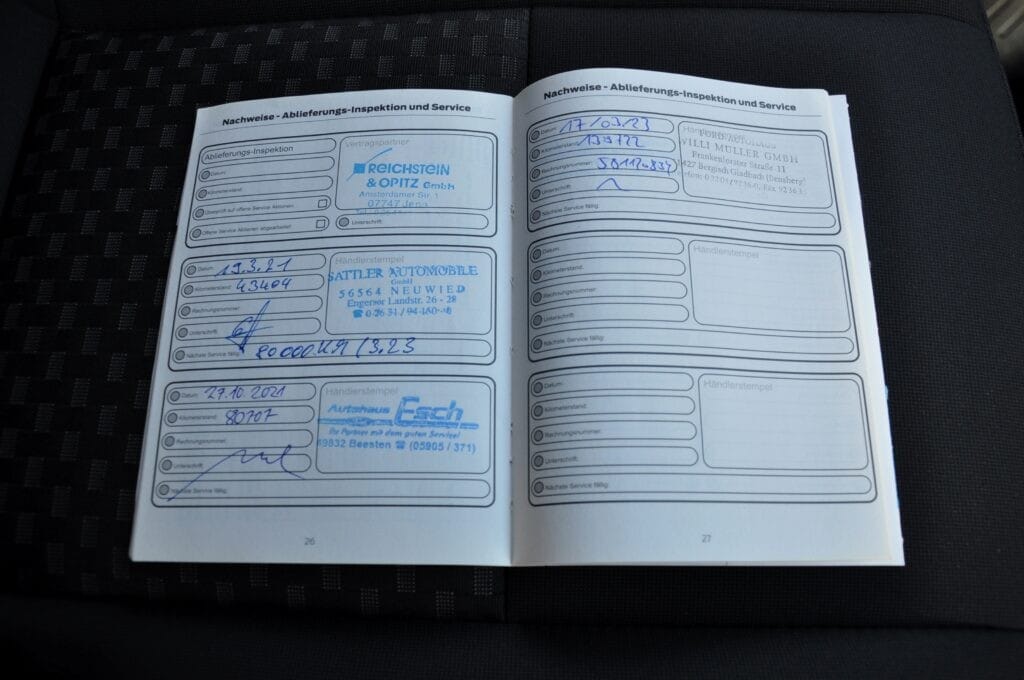 Nachweise - Ablieferungs-Inspektion und Service
Ablieferungs-Inspektion
Datum:
Kilometerstand:
Überprüft auf offene Service Aktionen:
Offene Service Aktionen abgearbeitet:
Vertragspartner
REICHSTEIN
& OPITZ GmbH
Amsterdamer Str. 1
07747 Jena
Unterschrift:
Datum: 19.3.21
Kilometerstand: 43404
Rechnungsnummer:
Unterschrift:
Nächste Service fällig: 80000 KM / 3.23
Händlerstempel
SATTLER AUTOMOBILE
GmbH
56564 NEUWIED
Engerser Landstr. 26 - 28
☎ 0 26 31 / 94 160
Datum: 27.10.2021
Kilometerstand: 80707
Rechnungsnummer:
Unterschrift:
Nächste Service fällig:
Händlerstempel
Autohaus Esch
Ihr Partner mit dem guten Service!
49832 Beesten ☎ (05905 / 371)
26
Nachweise - Ablieferungs-Inspektion und Service
Datum: 17/03/23
Kilometerstand:
Rechnungsnummer:
Unterschrift:
Nächste Service fällig:
FORD AUTOHAUS
WILLI MÜLLER GMBH
Frankenforster Straße
Bergisch Gladbach (Bensberg)
Datum:
Kilometerstand:
Rechnungsnummer:
Unterschrift:
Nächste Service fällig:
Händlerstempel
Datum:
Kilometerstand:
Rechnungsnummer:
Unterschrift:
Nächste Service fällig:
Händlerstempel
27